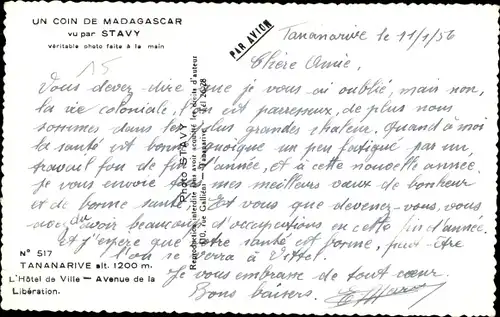 UN COIN DE MADAGASCAR
vu par STAVY
véritable photo faite à la main
15
PAR AVION
Tananarive le 11/1/56
Chère Amie,
Vous devez dire que je vous ai oublié, mais non,
la vie coloniale, l'on est paresseux, de plus nous
sommes dans les plus grandes chaleur. Quand à moi
la santé est bonne quoique un peu fatigué par un
travail fou de fin d'année, et à cette nouvelle année
je vous envoie mes meilleurs vœux de bonheur
et de bonne santé. Et vous que devenez-vous, vous
avez du avoir beaucoup d'occupations en cette fin d'année.
et j'espère que votre santé est bonne, peut-être
l'on se verra à Vittel.
Je vous embrasse de tout cœur.
Bons baisers.
Photo STAVY
Reproduction interdite sans avoir acquitté les droits d'auteur
rue Galliéni — Tananarive — Tél 2028
N° 517
TANANARIVE alt. 1200 m.
L'Hôtel de Ville — Avenue de la
Libération.